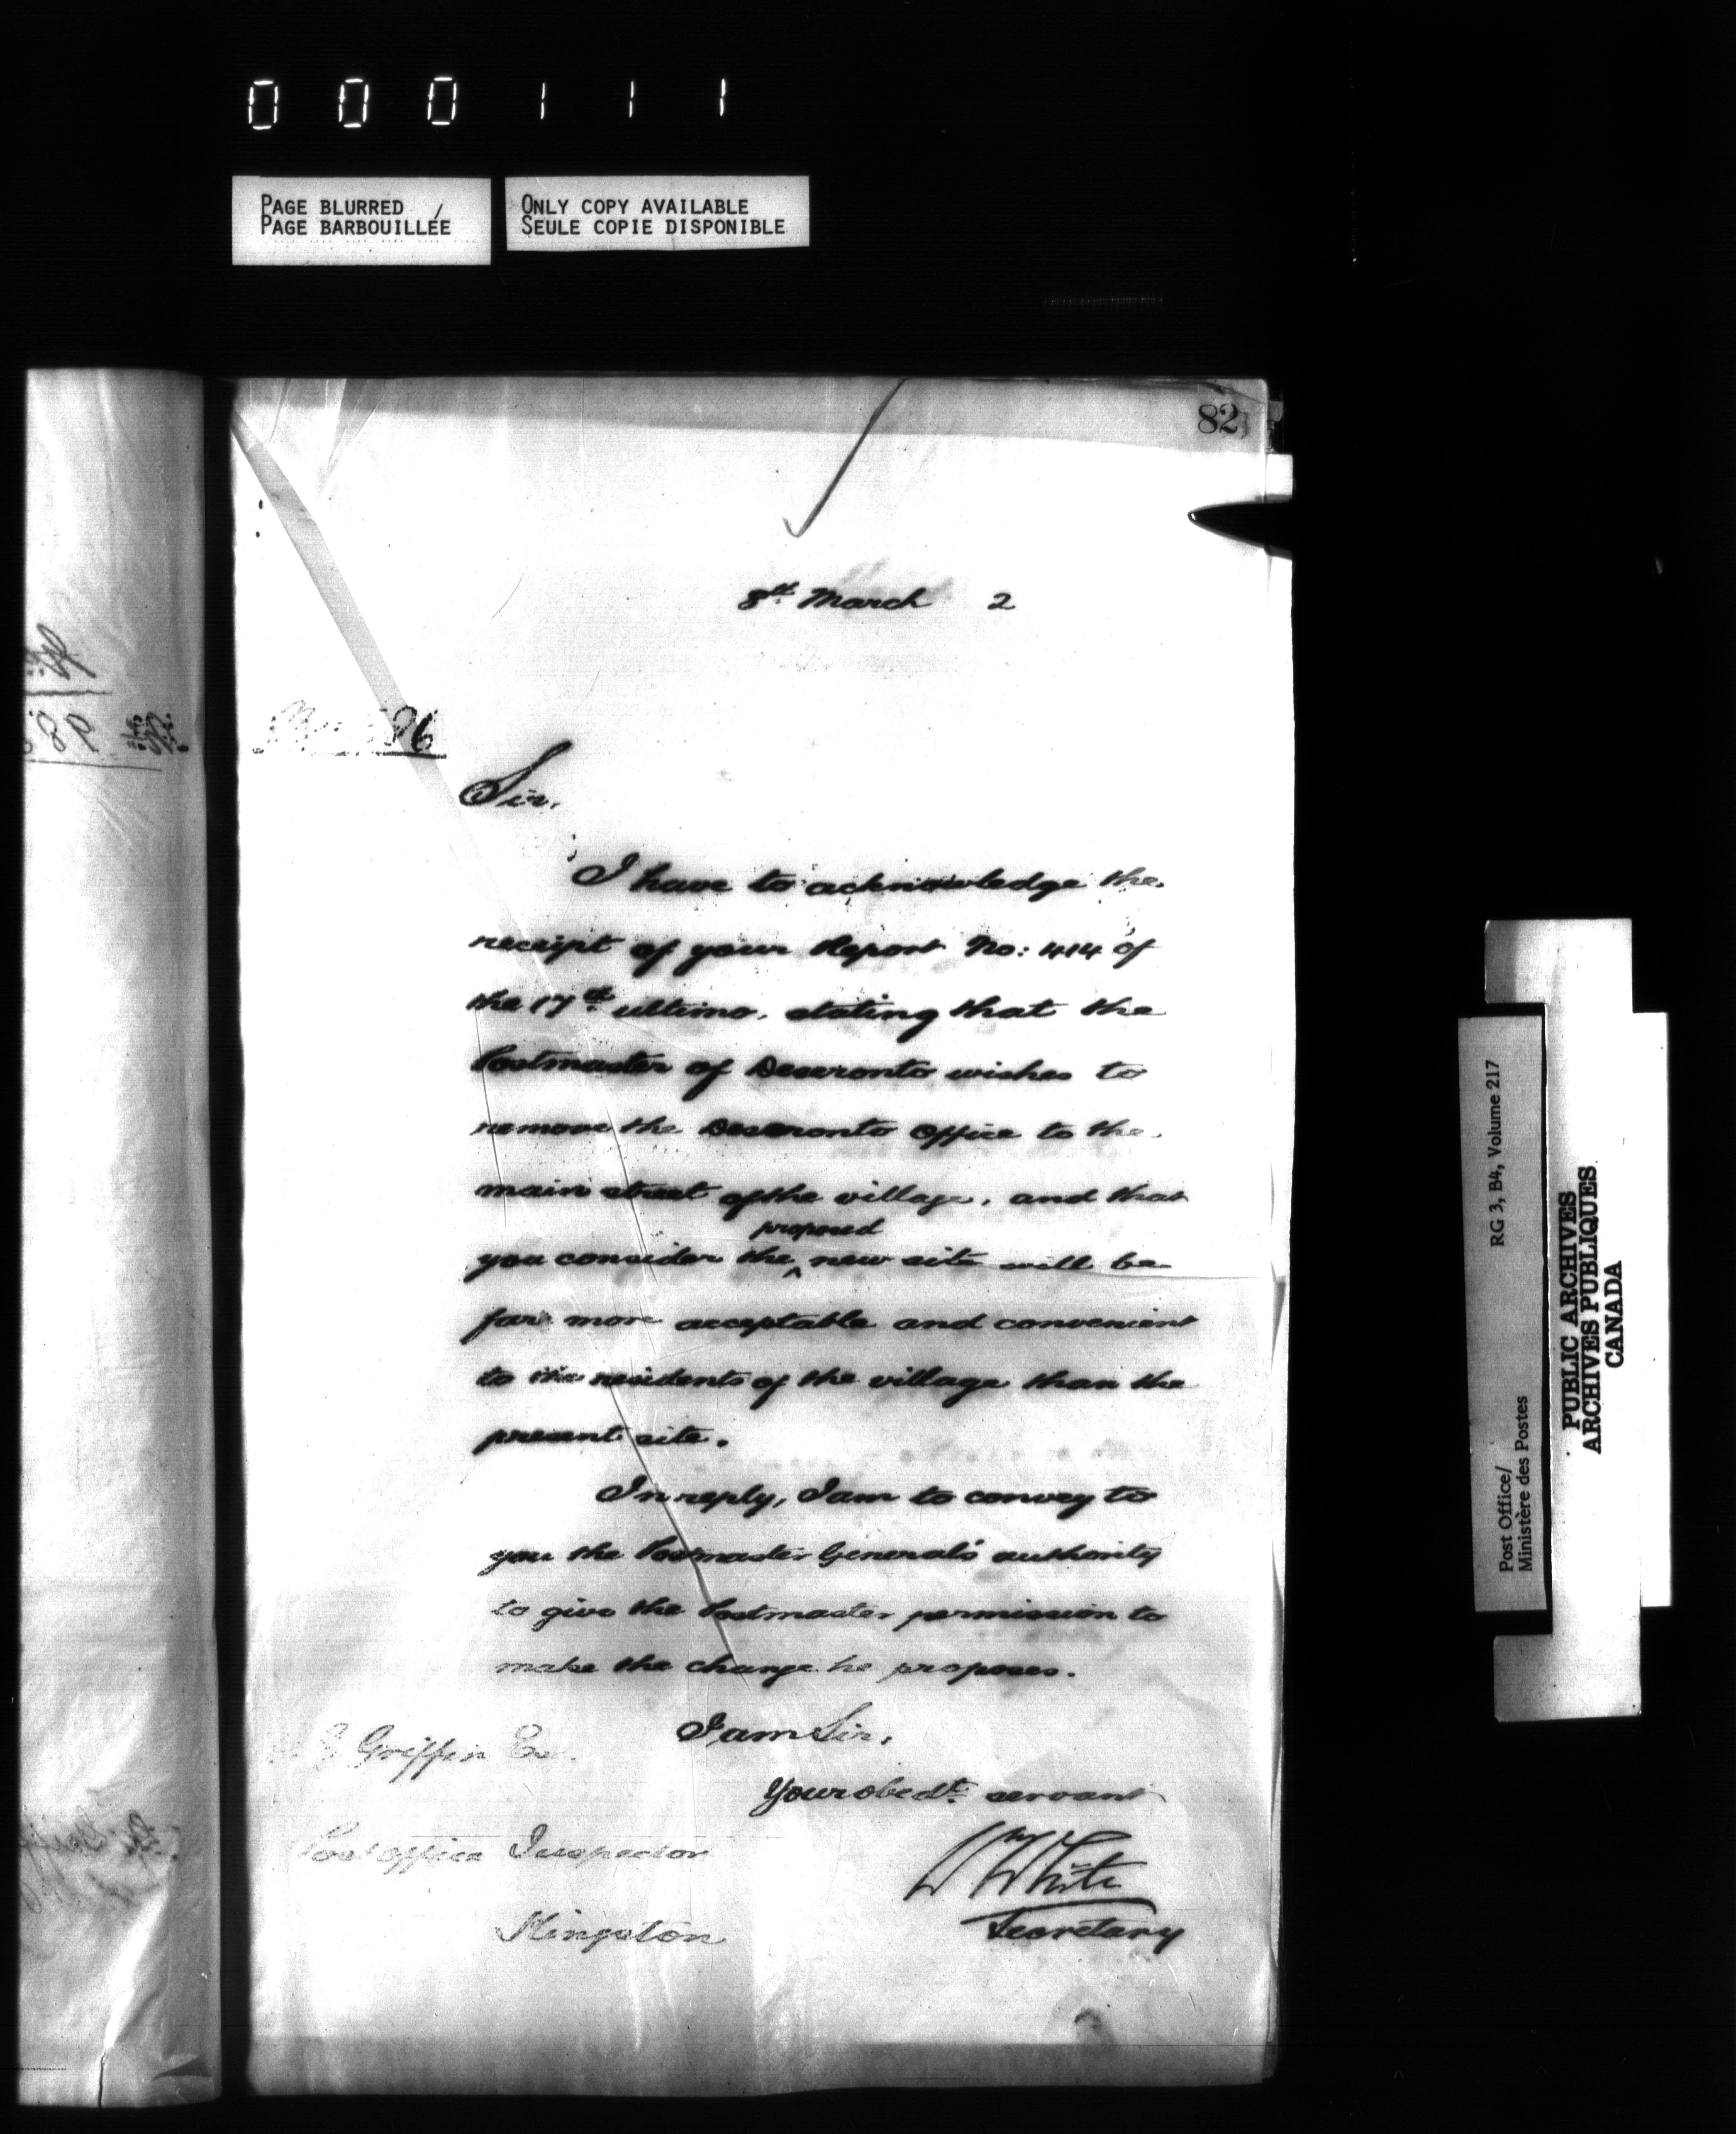 000111
PAGE BLURRED
PAGE BARBOUILLÉE
ONLY COPY AVAILABLE
SEULE COPIE DISPONIBLE
82
8th March 2
Sir,
I have to acknowledge the
receipt of your Report No: 414 of
the 17th ultimo, stating that the
Postmaster of Deseronto wishes to
remove the Deseronto office to the
main street of the village, and that
you consider the ^ proposed new site will be
far more acceptable and convenient
to the residents of the village than the
present site.
In reply, I am to convey to
you the Postmaster General's authority
to give the Postmaster permission to
make the change he proposes.
I am Sir,
Your obedt. servant
Wm White
Secretary
Griffin
Post office Inspector
Kingston
RG 3, B4, Volume 217
Post Office/
Ministère des Postes
PUBLIC ARCHIVES
ARCHIVES PUBLIQUES
CANADA